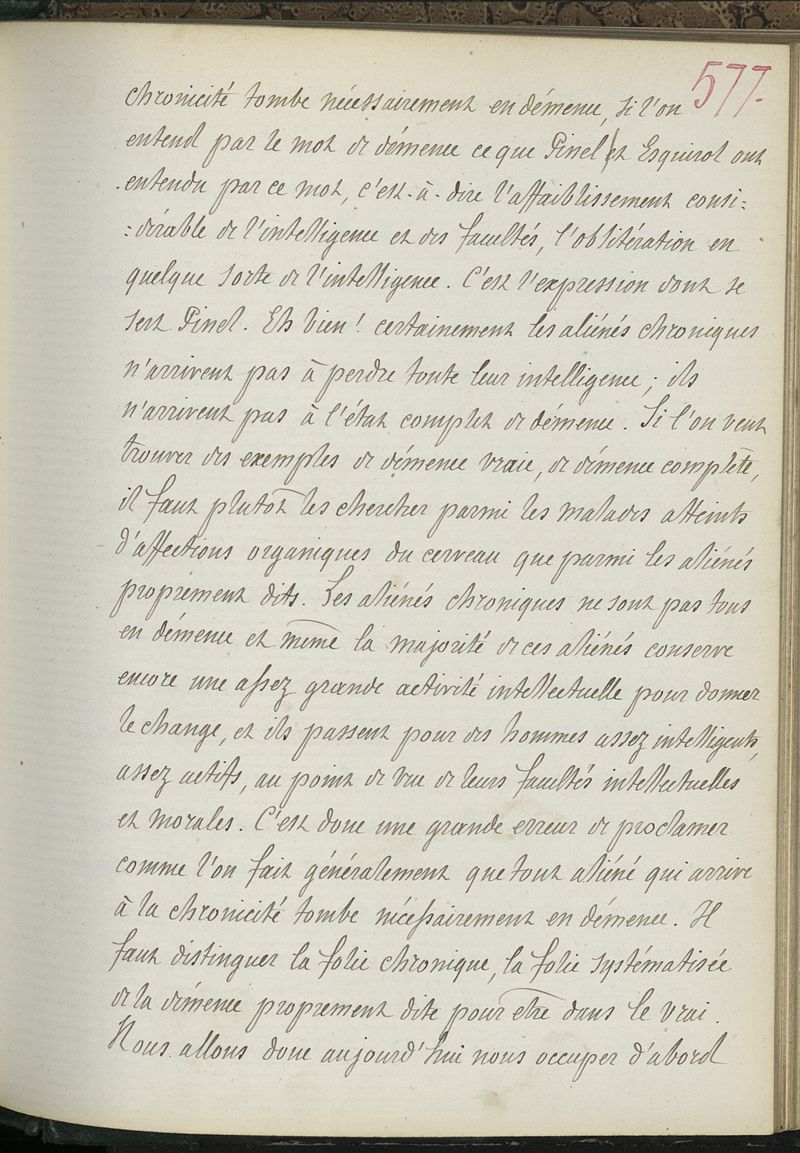 577.
chronicité tombe nécessairement en démence, si l'on
entend par le mot de démence ce que Pinel et Esquirol ont
entendu par ce mot, c'est-à-dire l'affaiblissement consi:
:dérable de l'intelligence et des facultés, l'oblitération en
quelque sorte de l'intelligence. C'est l'expression dont se
sert Pinel. Eh bien! certainement les aliénés chroniques
n'arrivent pas à perdre toute leur intelligence; ils
n'arrivent pas à l'état complet de démence. Si l'on veut
trouver des exemples de démence vraie, de démence complète,
il faut plutôt les chercher parmi les malades atteints
d'affections organiques du cerveau que parmi les aliénés
proprement dits. Les aliénés chroniques ne sont pas tous
en démence et même la majorité de ces aliénés conserve
encore une assez grande activité intellectuelle pour donner
le change, et ils passent pour des hommes assez intelligents,
assez actifs, au point de vue de leurs facultés intellectuelles
et morales. C'est donc une grande erreur de proclamer
comme l'on fait généralement que tout aliéné qui arrive
à la chronicité tombe nécessairement en démence. Il
faut distinguer la folie chronique, la folie systématisée
de la démence proprement dite pour être dans le vrai.
Nous allons donc aujourd'hui nous occuper d'abord